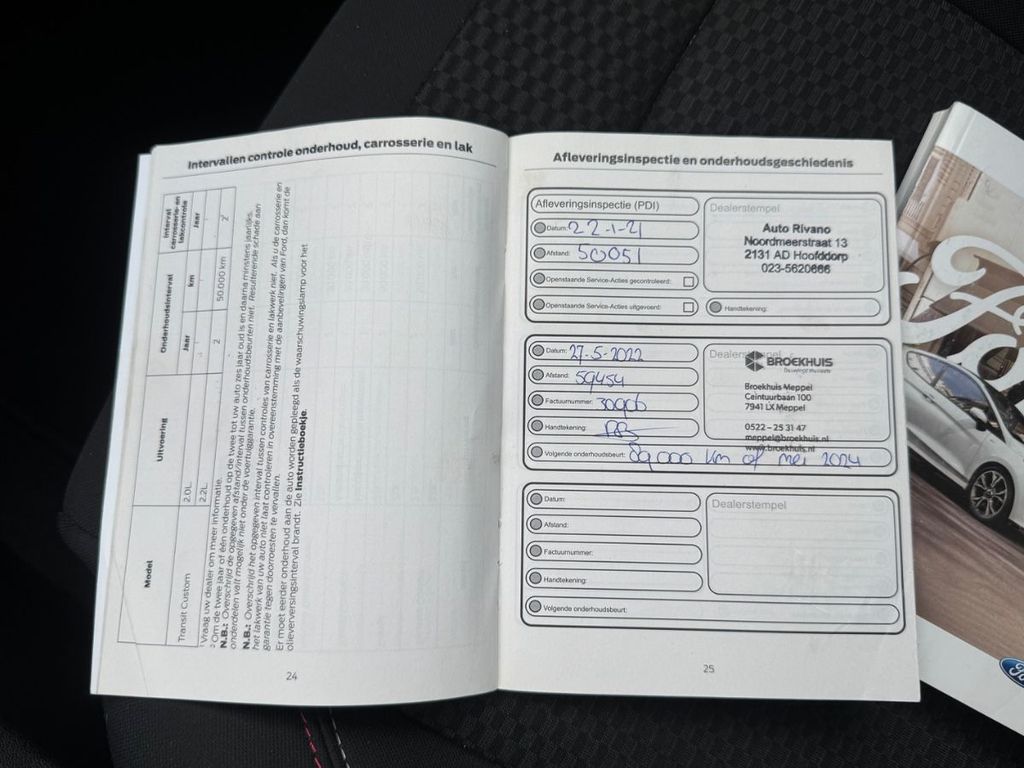 Intervallen controle onderhoud, carrosserie en lak
Model
Uitvoering
Onderhoudsinterval
Interval carrosserie- en lakcontrole
Jaar
km
Jaar
Transit Custom
2.0L
2
50.000 km
2.2L
¹ Vraag uw dealer om meer informatie.
² Om de twee jaar of één onderhoud op de twee tot uw auto zes jaar oud is en daarna minstens jaarlijks.
N.B.: Overschrijd de opgegeven afstand/interval tussen onderhoudsbeurten niet. Resulterende schade aan
onderdelen valt mogelijk niet onder de voertuiggarantie.
N.B.: Overschrijd het opgegeven interval tussen controles van carrosserie en lakwerk niet. Als u de carrosserie en
het lakwerk van uw auto niet laat controleren in overeenstemming met de aanbevelingen van Ford, dan komt de
garantie tegen doorroesten te vervallen.
Er moet eerder onderhoud aan de auto worden gepleegd als de waarschuwingslamp voor het
olieverversingsinterval brandt. Zie Instructieboekje.
24
Afleveringsinspectie en onderhoudsgeschiedenis
Afleveringsinspectie (PDI)
Datum: 22-1-21
Afstand: 50051
Openstaande Service-Acties gecontroleerd:
Openstaande Service-Acties uitgevoerd:
Dealerstempel
Auto Rivano
Noordmeerstraat 13
2131 AD Hoofddorp
023-5620666
Handtekening:
Datum: 27-5-2022
Afstand: 59454
Factuurnummer: 30906
Handtekening:
Volgende onderhoudsbeurt: 89.000 km of mei 2024
Dealerstempel
BROEKHUIS
Broekhuis Meppel
Ceintuurbaan 100
7941 LX Meppel
0522 – 25 31 47
meppel@broekhuis.nl
www.broekhuis.nl
Datum:
Afstand:
Factuurnummer:
Handtekening:
Volgende onderhoudsbeurt:
Dealerstempel
25